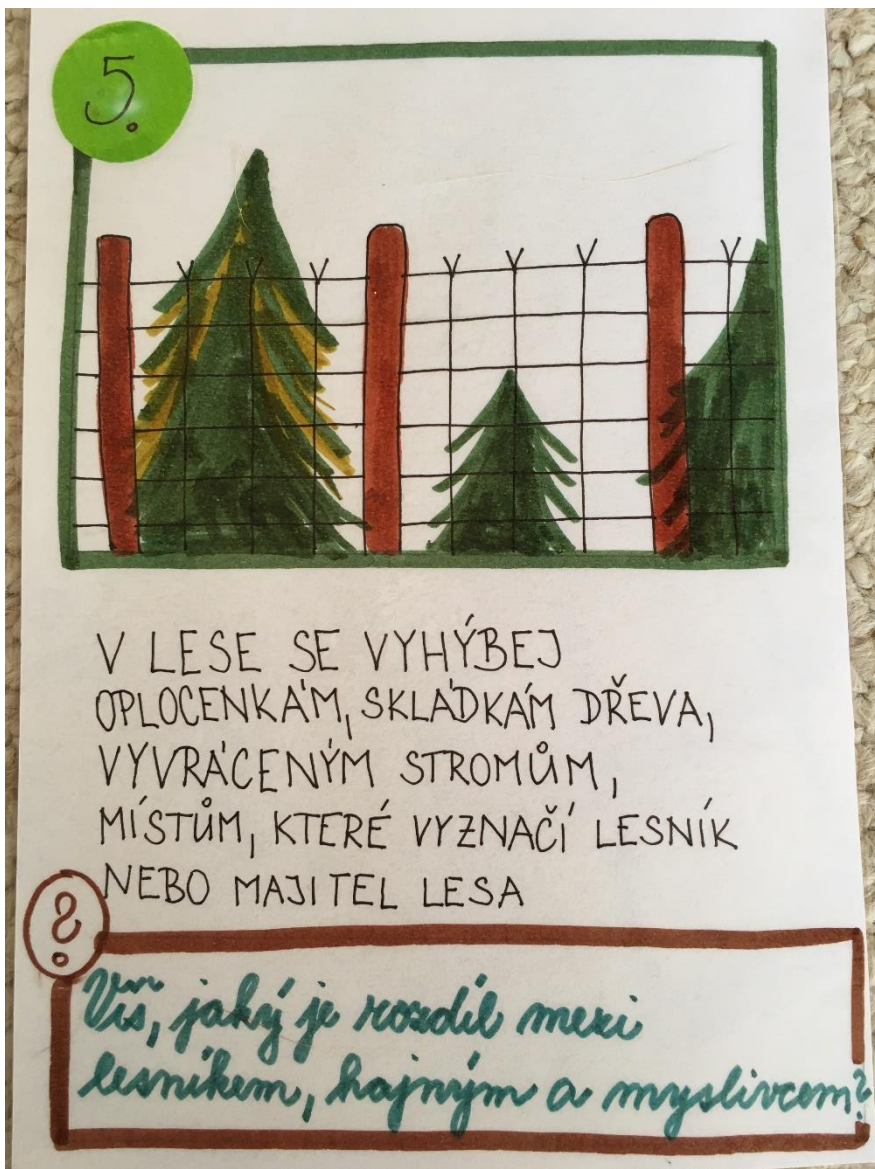 5.
V LESE SE VYHÝBEJ
OPLOCENKÁM, SKLÁDKÁM DŘEVA,
VYVRÁCENÝM STROMŮM,
MÍSTŮM, KTERÉ VYZNAČÍ LESNÍK
NEBO MAJITEL LESA
?
Víš, jaký je rozdíl mezi
lesníkem, hajným a myslivcem?